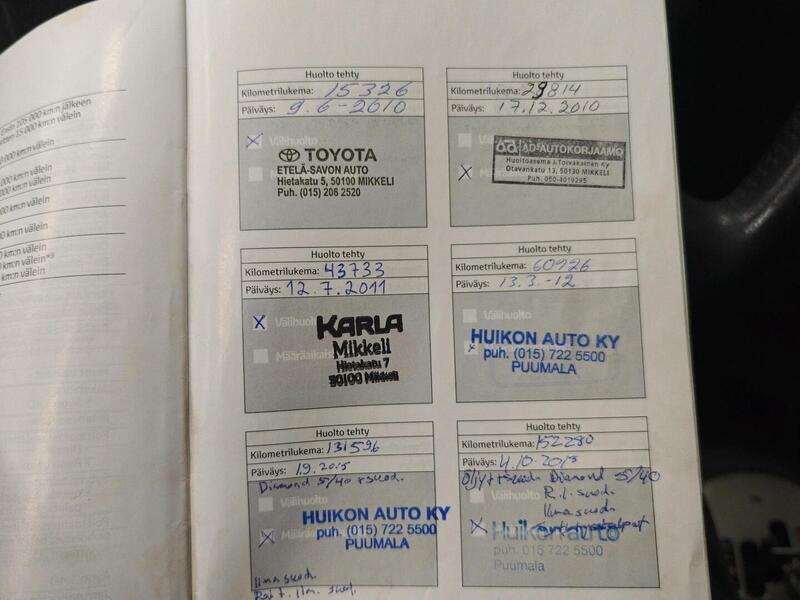 Ensin 105 000 km:n jälkeen
sitten 15 000 km välein
000 km:n välein
000 km:n välein
000 km:n välein
0 km:n välein
0 km:n välein
km:n välein*³
km:n välein
Huolto tehty
Kilometrilukema: 15326
Päiväys: 9.6-2010
Välihuolto
TOYOTA
ETELÄ-SAVON AUTO
Hietakatu 5, 50100 MIKKELI
Puh. (015) 206 2520
Huolto tehty
Kilometrilukema: 29814
Päiväys: 17.12.2010
ad AD-AUTOKORJAAMO
Huoltoasema J.Toivakainen Ky
Otavankatu 13, 50130 MIKKELI
Puh. 050-4019295
Huolto tehty
Kilometrilukema: 43733
Päiväys: 12.7.2011
Välihuolto
Määräaikais
KARLA
Mikkeli
Hietakatu 7
50100 Mikkeli
Huolto tehty
Kilometrilukema: 60926
Päiväys: 13.3.-12
HUIKON AUTO KY
puh. (015) 722 5500
PUUMALA
Huolto tehty
Kilometrilukema: 131596
Päiväys: 1.9.2015
Diamond 5/40 + suod.
Välihuolto
HUIKON AUTO KY
puh. (015) 722 5500
PUUMALA
Ilma suod.
Rait. ilm. suod.
Huolto tehty
Kilometrilukema: 152280
Päiväys: 4.10.2015
Öljyt + suod. Diamond 5/40
R.i. suod.
Ilma suod.
Huikon auto
puh. 015 722 5500
Puumala